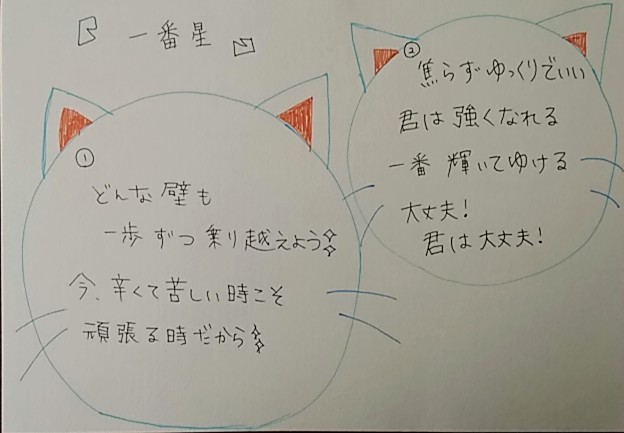 『一番星』
①
どんな壁も
一歩ずつ乗り越えよう
今、辛くて苦しい時こそ
頑張る時だから
②
焦らずゆっくりでいい
君は強くなれる
一番輝いてゆける
大丈夫!
君は大丈夫!